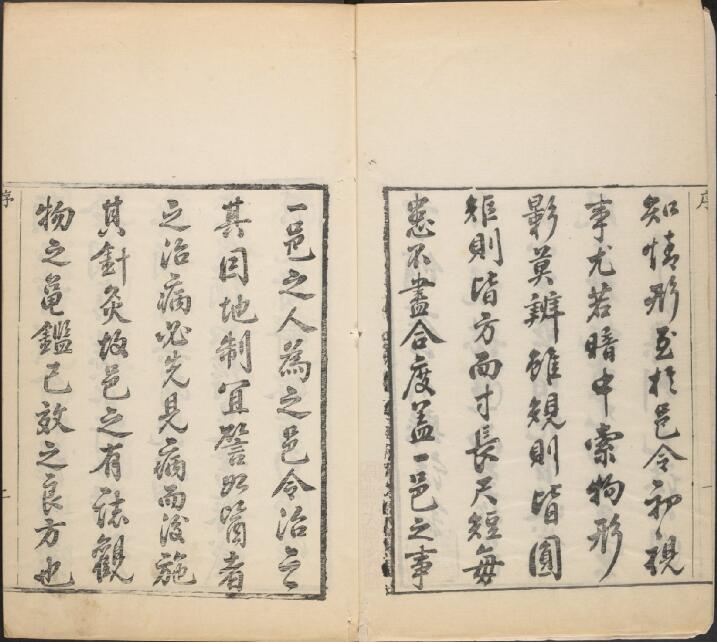 序
知情形至於邑令初視
事尤若暗中索物形
影莫辨雖規則皆圓
矩則皆方而寸長尺短每
患不盡合度蓋一邑之事
一邑之人為之邑令治之
其因地制宜譬如醫者
之治病必先見病而後施
其針灸故邑之有誌觀
物之龜鑑已效之良方也
序
二